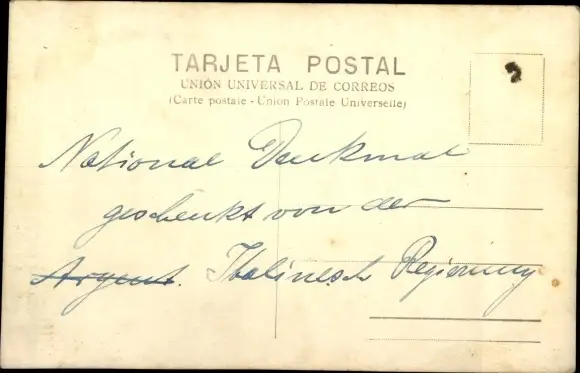 TARJETA POSTAL
UNIÓN UNIVERSAL DE CORREOS
(Carte postale - Union Postale Universelle)
National Denkmal
geschenkt von der
Argent. Italinesch Regierung